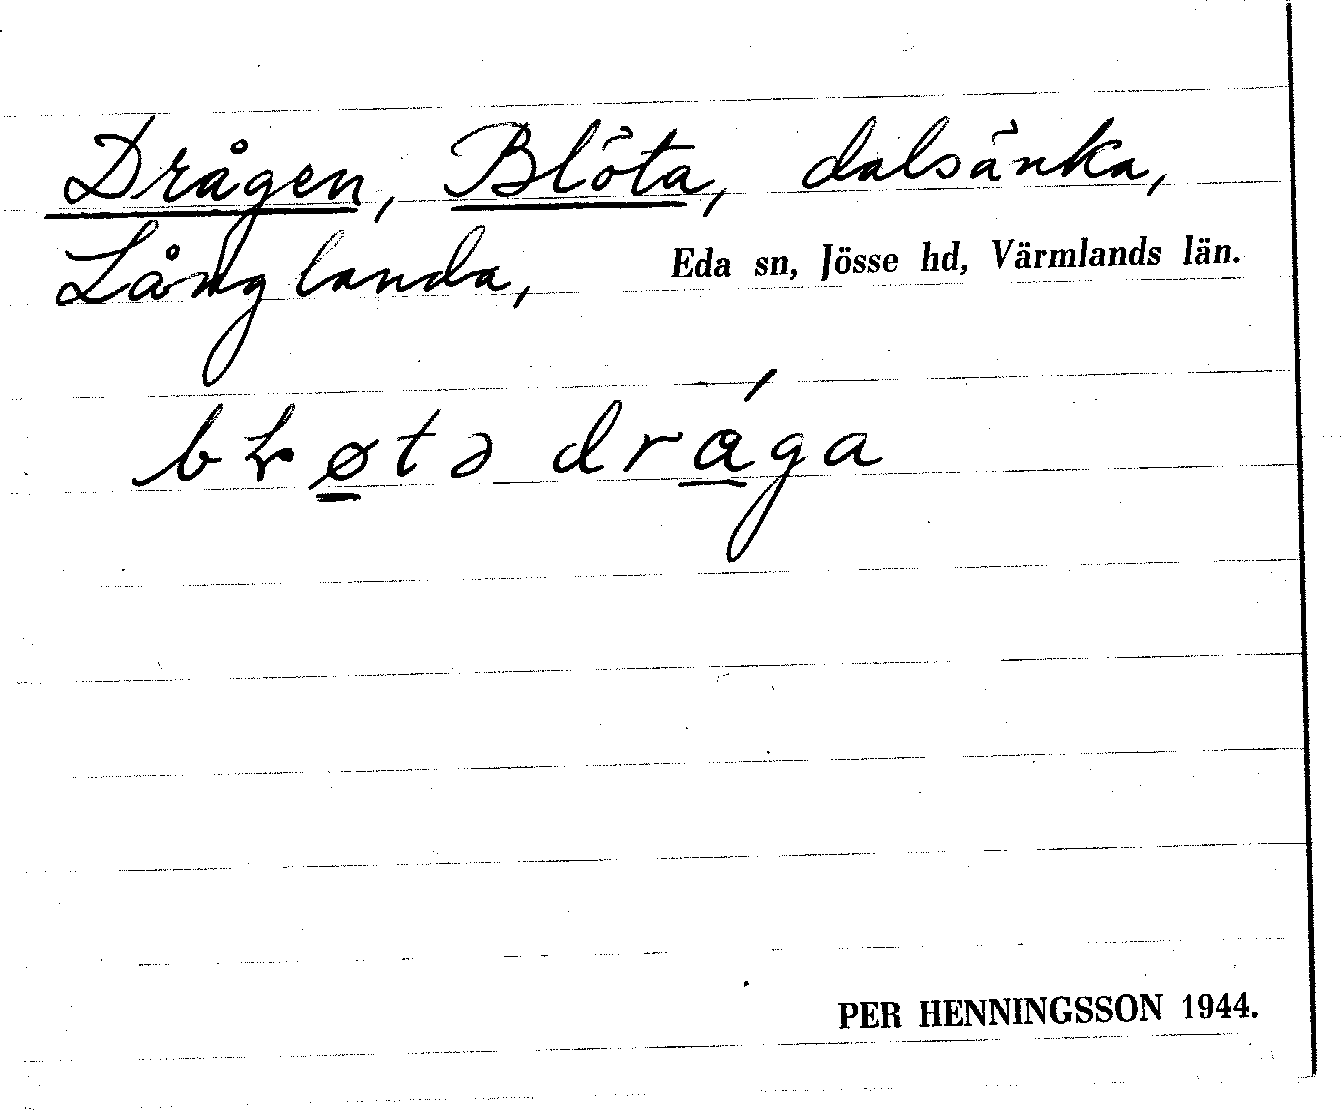 Drågen, Blöta, dalsänka,
Långlanda, Eda sn, Jösse hd, Värmlands län.
bɽøtə drága
PER HENNINGSSON 1944.